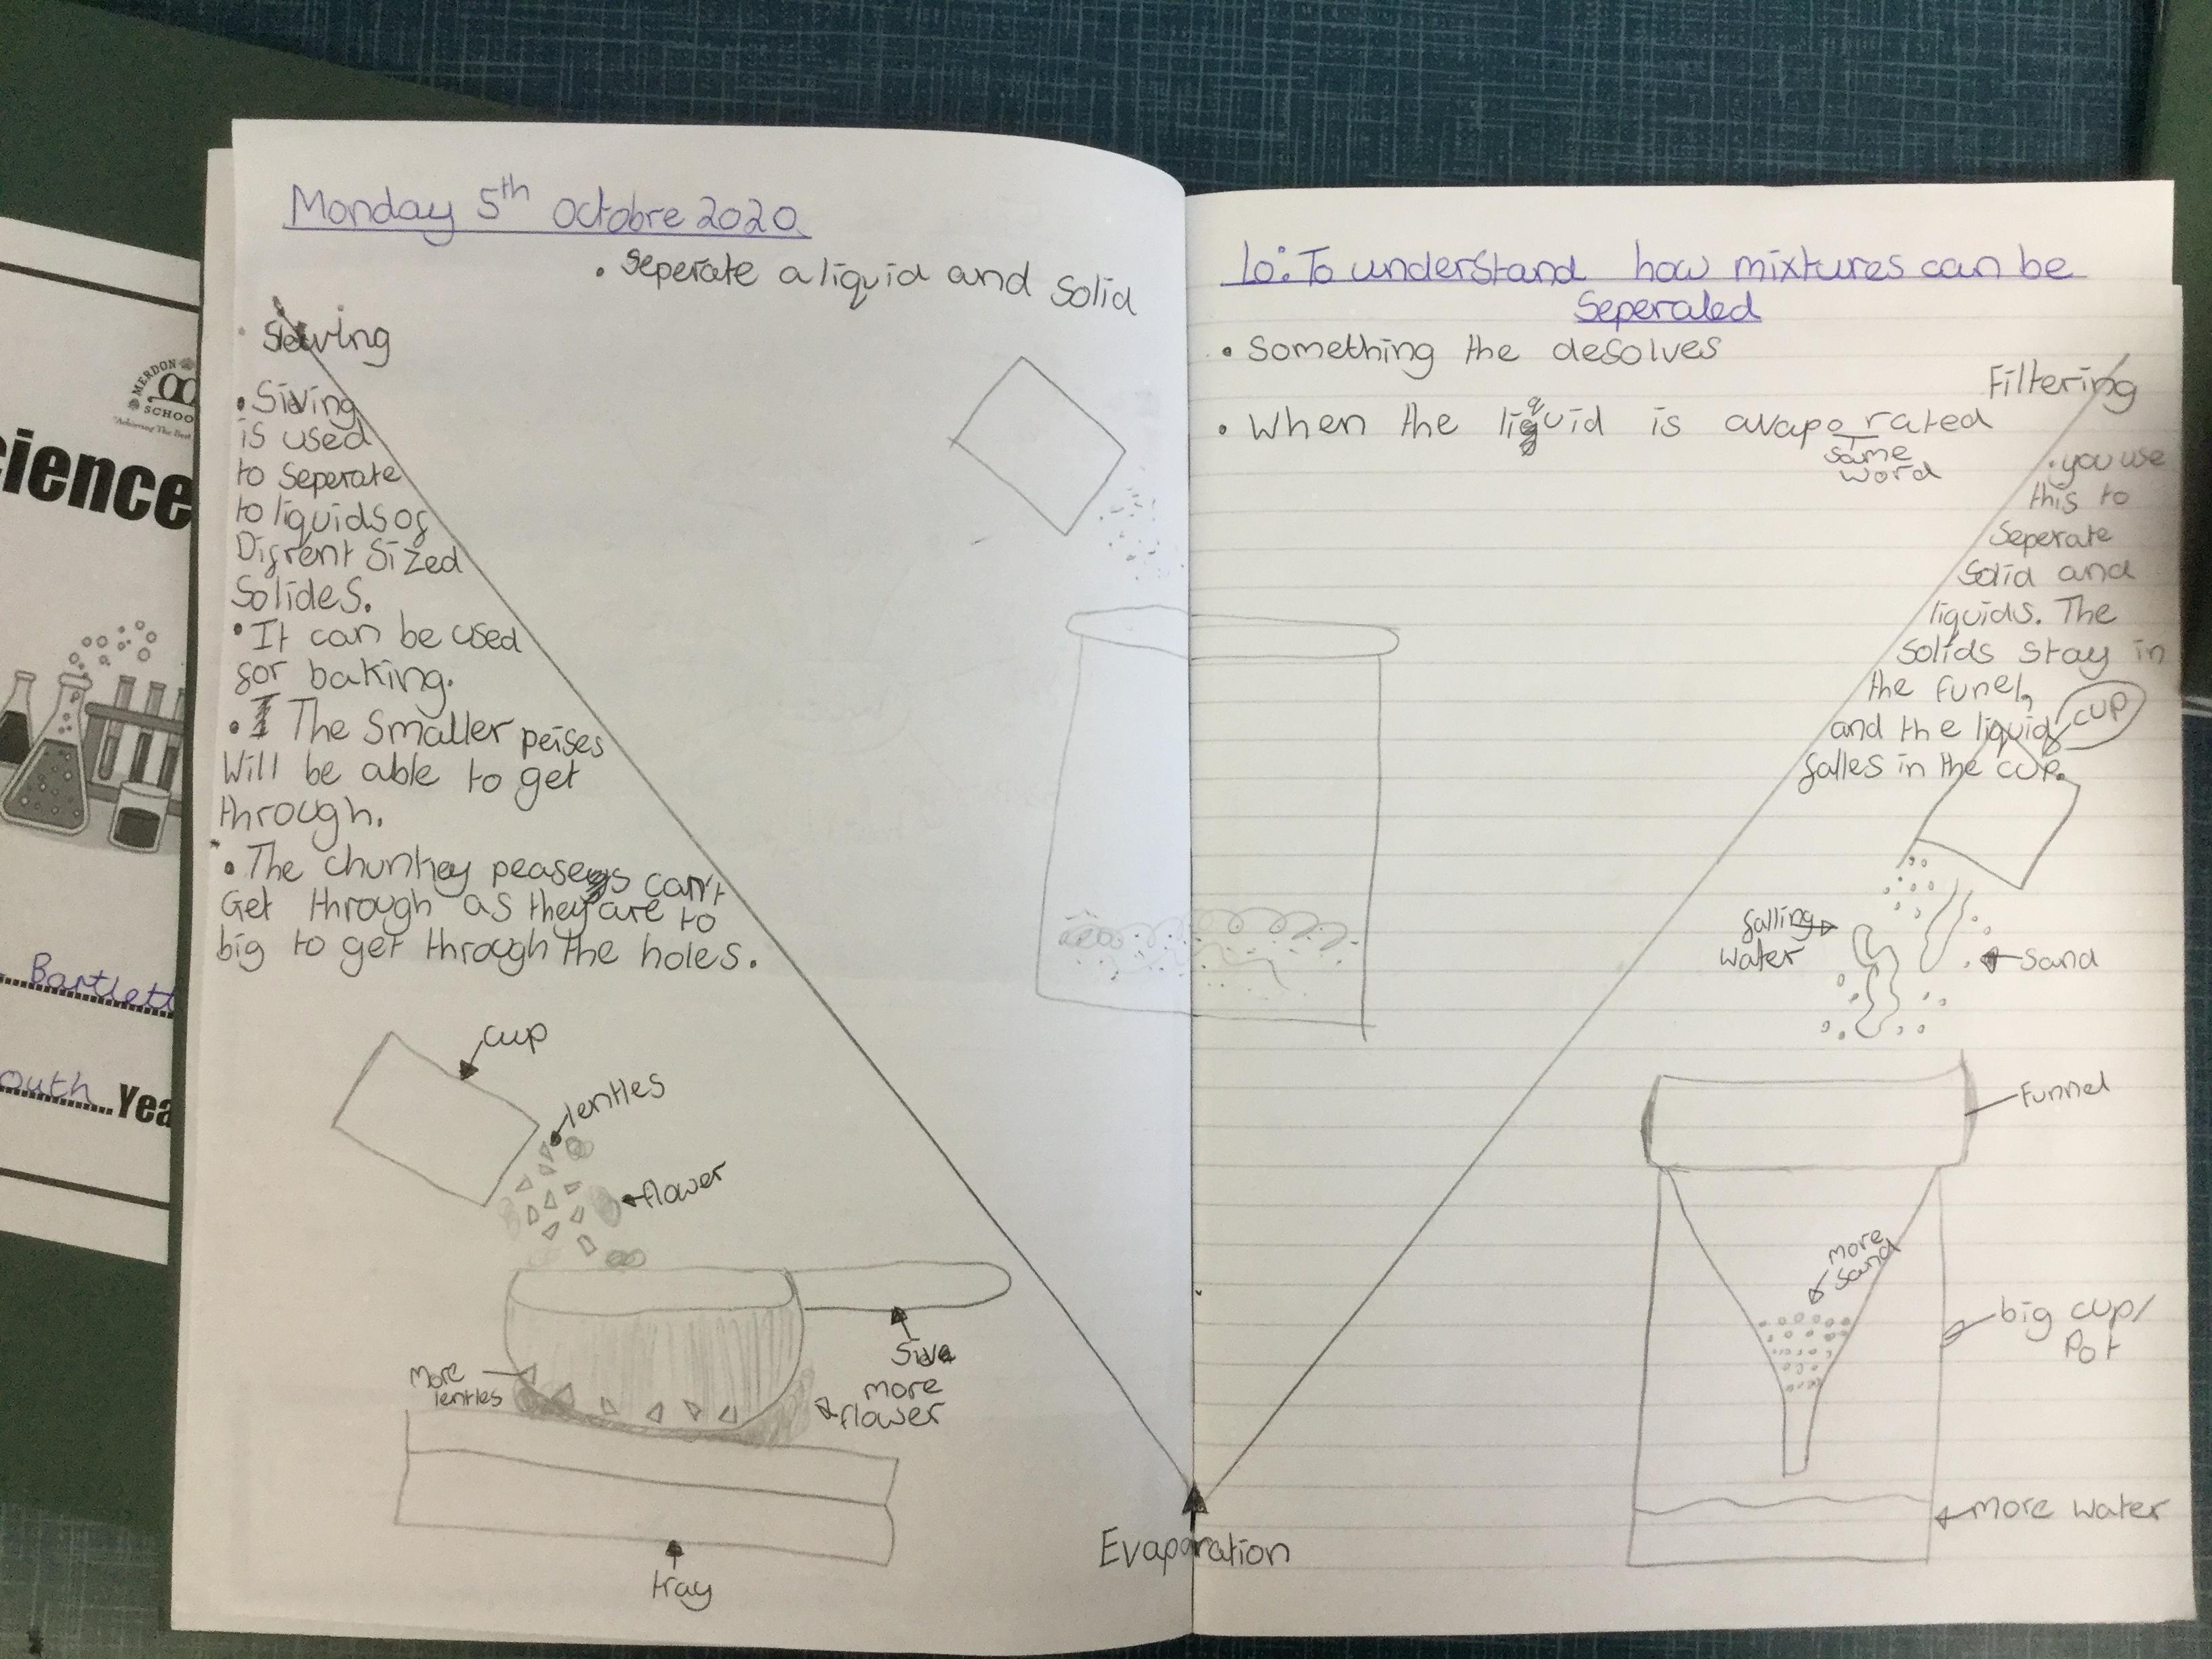 MERDON
SCHOO
"Achieving The Best
cience
Bartlett
outh Yea
Monday 5th octobre 2020
• Seperate a liquid and Solid
• Siving
• Siving
is used
to Seperate
to liquids of
Difrent Sized
Solides.
• It can be used
for baking.
• The Smaller peises
Will be able to get
through.
• The chunkey peases can't
Get through as they are to
big to get through the holes.
cup
lentles
flower
Sive
More
lentles
more
flower
tray
Evaporation
Lo: To understand how mixtures can be
Seperated
• Something the desolves
• When the liquid is avaporated
Same
word
Filtering
• you use
this to
Seperate
Solid and
liquids. The
Solids stay in
the funel,
and the liquid
falles in the cup.
cup
falling
water
Sand
Funnel
more
Sand
big cup/
Pot
more water